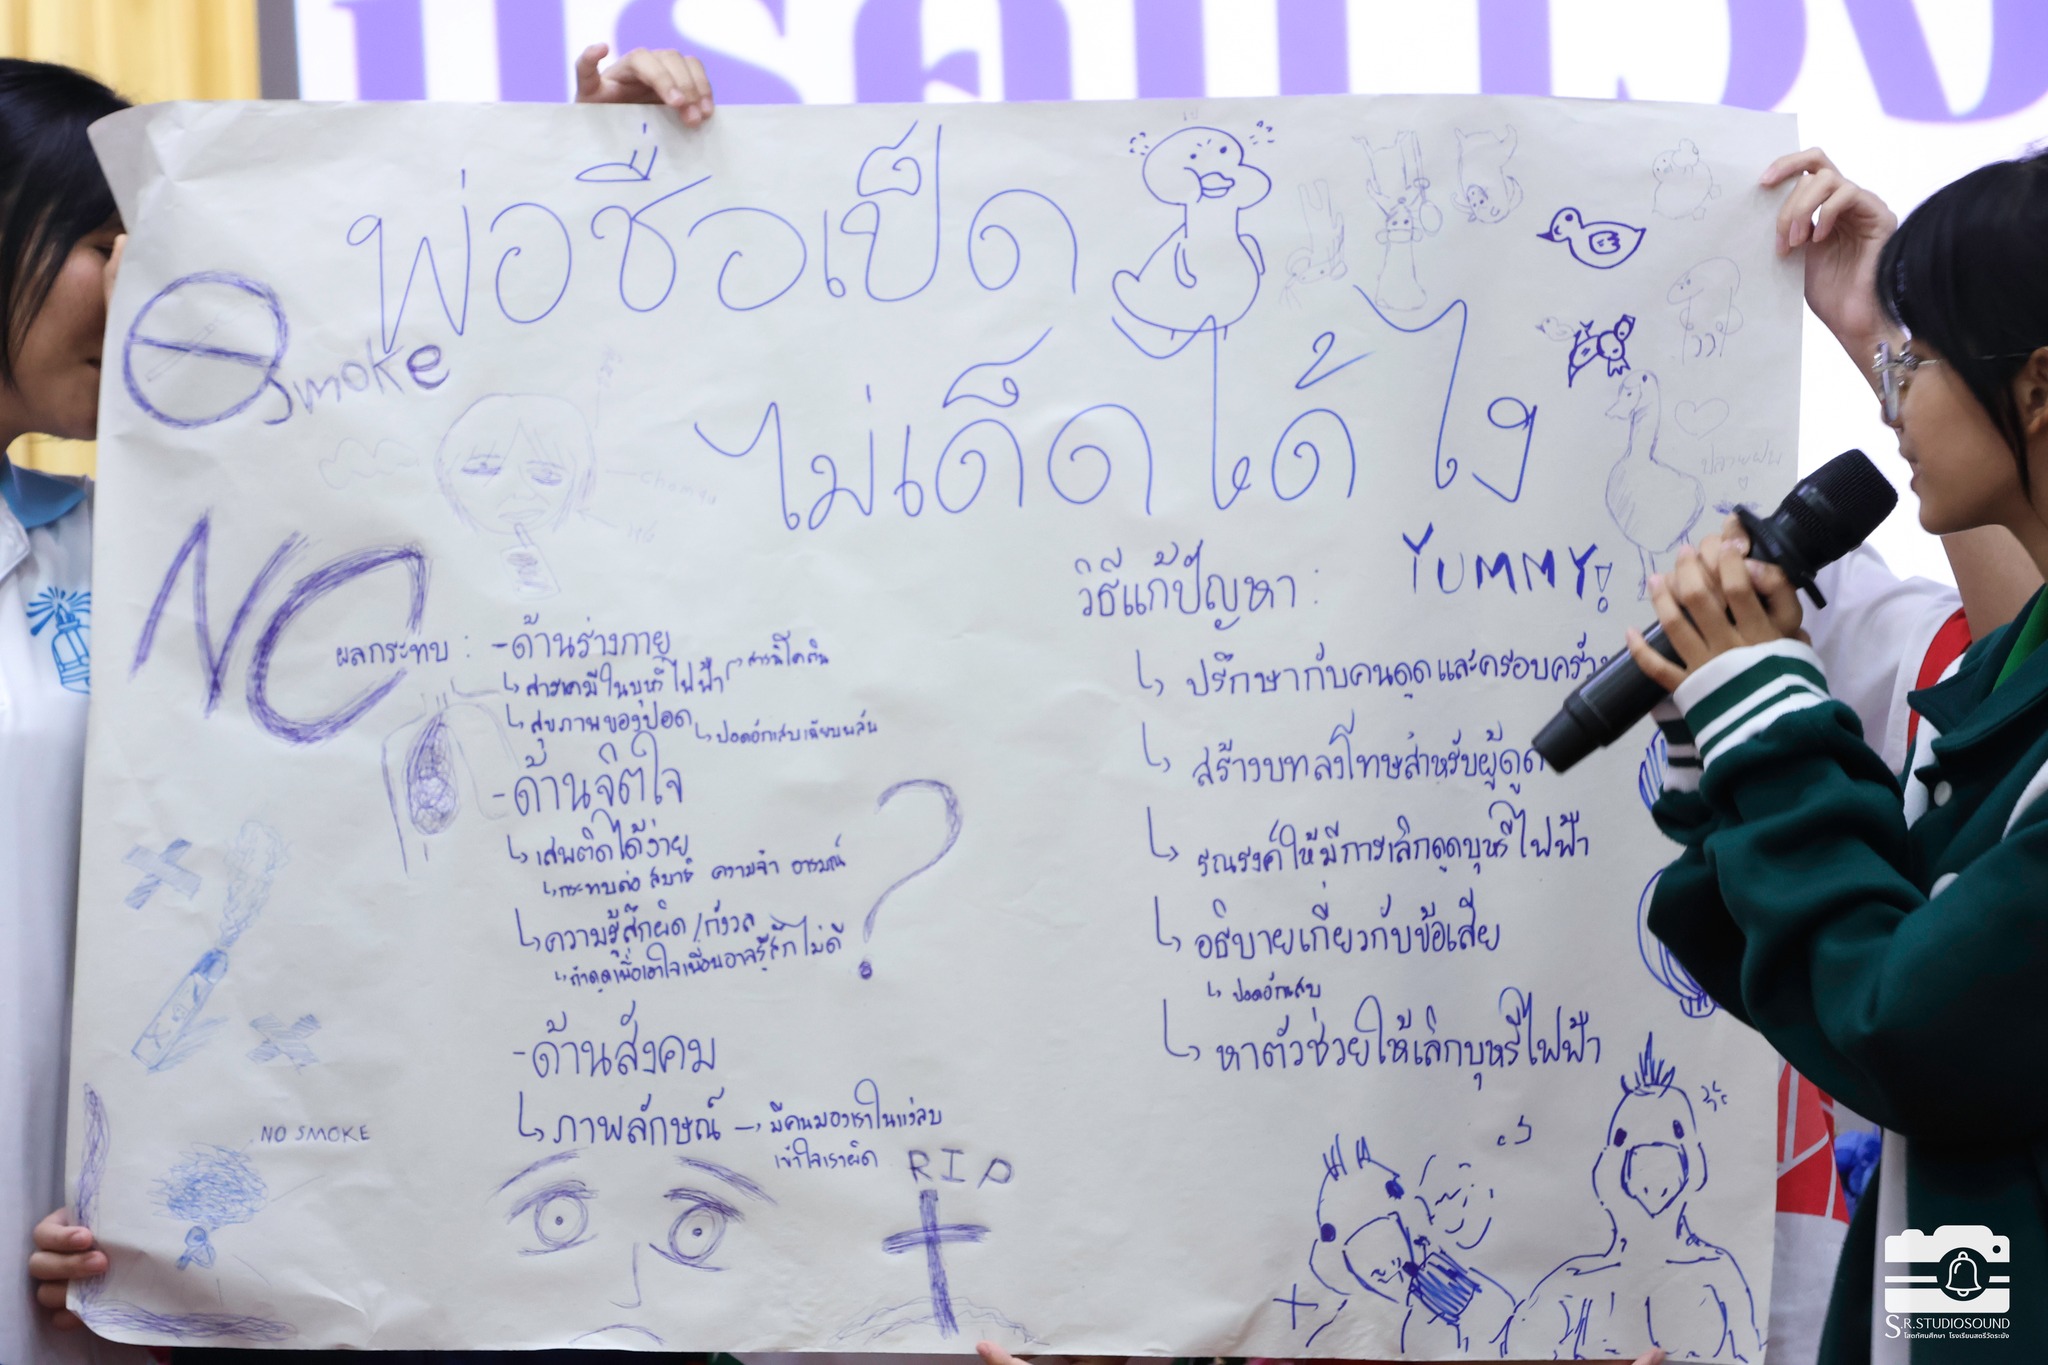 พ่อชื่อเป็ด
ไม่เด็ดได้ไง
smoke
NO
ผลกระทบ : -ด้านร่างกาย
สารเคมีในบุหรี่ไฟฟ้า สารนิโคติน
สุขภาพของปอด ปอดอักเสบเฉียบพลัน
-ด้านจิตใจ
เสพติดได้ง่าย
กระทบต่อ สมาธิ ความจำ อารมณ์
ความรู้สึกผิด/กังวล
ถ้าดูดเพื่อเอาใจเพื่อนอาจรู้สึกไม่ดี
-ด้านสังคม
ภาพลักษณ์ → มีคนมองเราในแง่ลบ
เข้าใจเราผิด
?
NO SMOKE
RIP
วิธีแก้ปัญหา :
YUMMY!
ปรึกษากับคนดูดและครอบครัว
สร้างบทลงโทษสำหรับผู้ดูด
รณรงค์ให้มีการเลิกดูดบุหรี่ไฟฟ้า
อธิบายเกี่ยวกับข้อเสีย
ปอดอักเสบ
หาตัวช่วยให้เลิกบุหรี่ไฟฟ้า
S.R.STUDIOSOUND
โสตทัศนศึกษา โรงเรียนสตรีวัดระฆัง